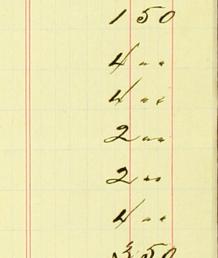 1 50
4 " "
4 " "
2 " "
2 " "
4 " "
3 50